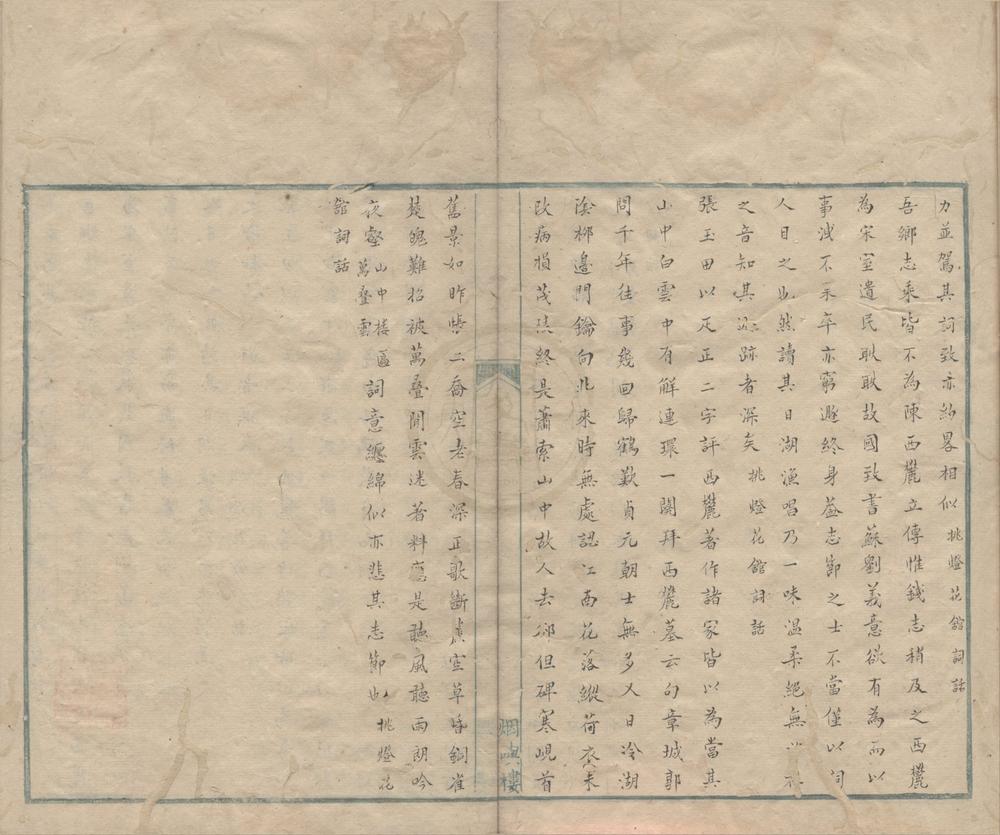 力並駕其詞致亦絕畧相似挑燈花館詞話
吾鄉志乘皆不為陳西麓立傳惟錢志稍及之西麓
為宋室遺民耿耿故國致書蘇劉義意欲有為而以
事洩不末卒亦窮遯終身蓋志節之士不當僅以詞
人目之也然讀其日湖漁唱乃一味温柔絕無
之音知其跡者深矣挑燈花館詞話
張玉田以疋正二字評西麓著作諸家皆以為當其
山中白雲中有解連環一闋拜西麓墓云句章城郭
問千年往事幾回歸鶴歎貞元朝士無多又日冷湖
陰柳邊門鑰向北來時無處認江南花落縱荷衣未
改病損茂陵終是蕭索山中故人去却但碑寒峴首
舊景如昨悵二喬空老春深正歌斷簾空草昏銅雀
楚魄難招被萬疊閒雲迷著料應是聽風聽雨朗吟
夜壑萬疊雲山中樓匾詞意纏綿似亦悲其志節也挑燈花
館詞話
烟嶼樓